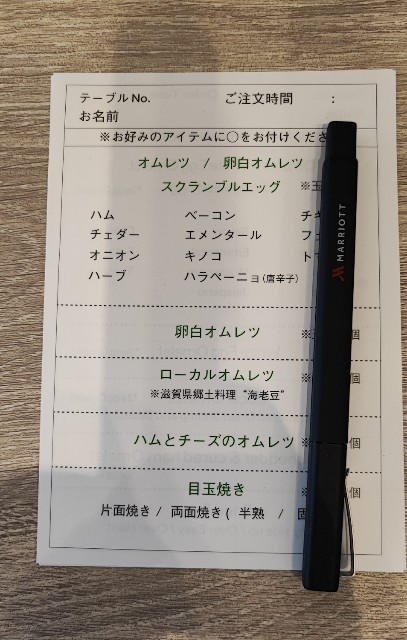 テーブル No. ご注文時間 :
お名前
※お好みのアイテムに○をお付けくださ
オムレツ / 卵白オムレツ
スクランブルエッグ ※玉
ハム ベーコン チキ
チェダー エメンタール フェ
オニオン キノコ トマ
ハーブ ハラペーニョ(唐辛子)
卵白オムレツ ※ 個
ローカルオムレツ ※ 個
※滋賀県郷土料理 “海老豆”
ハムとチーズのオムレツ ※ 個
目玉焼き ※ 個
片面焼き / 両面焼き ( 半熟 / 固
MARRIOTT